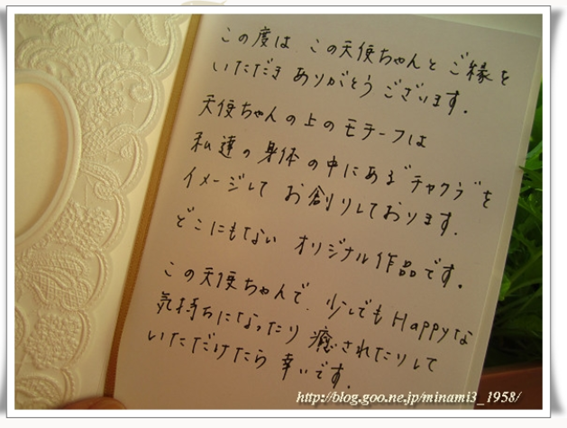 この度は この天使ちゃんと ご縁を
いただき ありがとう ございます。
天使ちゃんの上のモチーフは
私達の身体の中にある"チャクラ"を
イメージして お創りしております。
どこにもない オリジナル作品です。
この天使ちゃんで、少しでも Happyな
気持ちになったり 癒されたりして
いただけたら 幸いです。
http://blog.goo.ne.jp/minami3_1958/